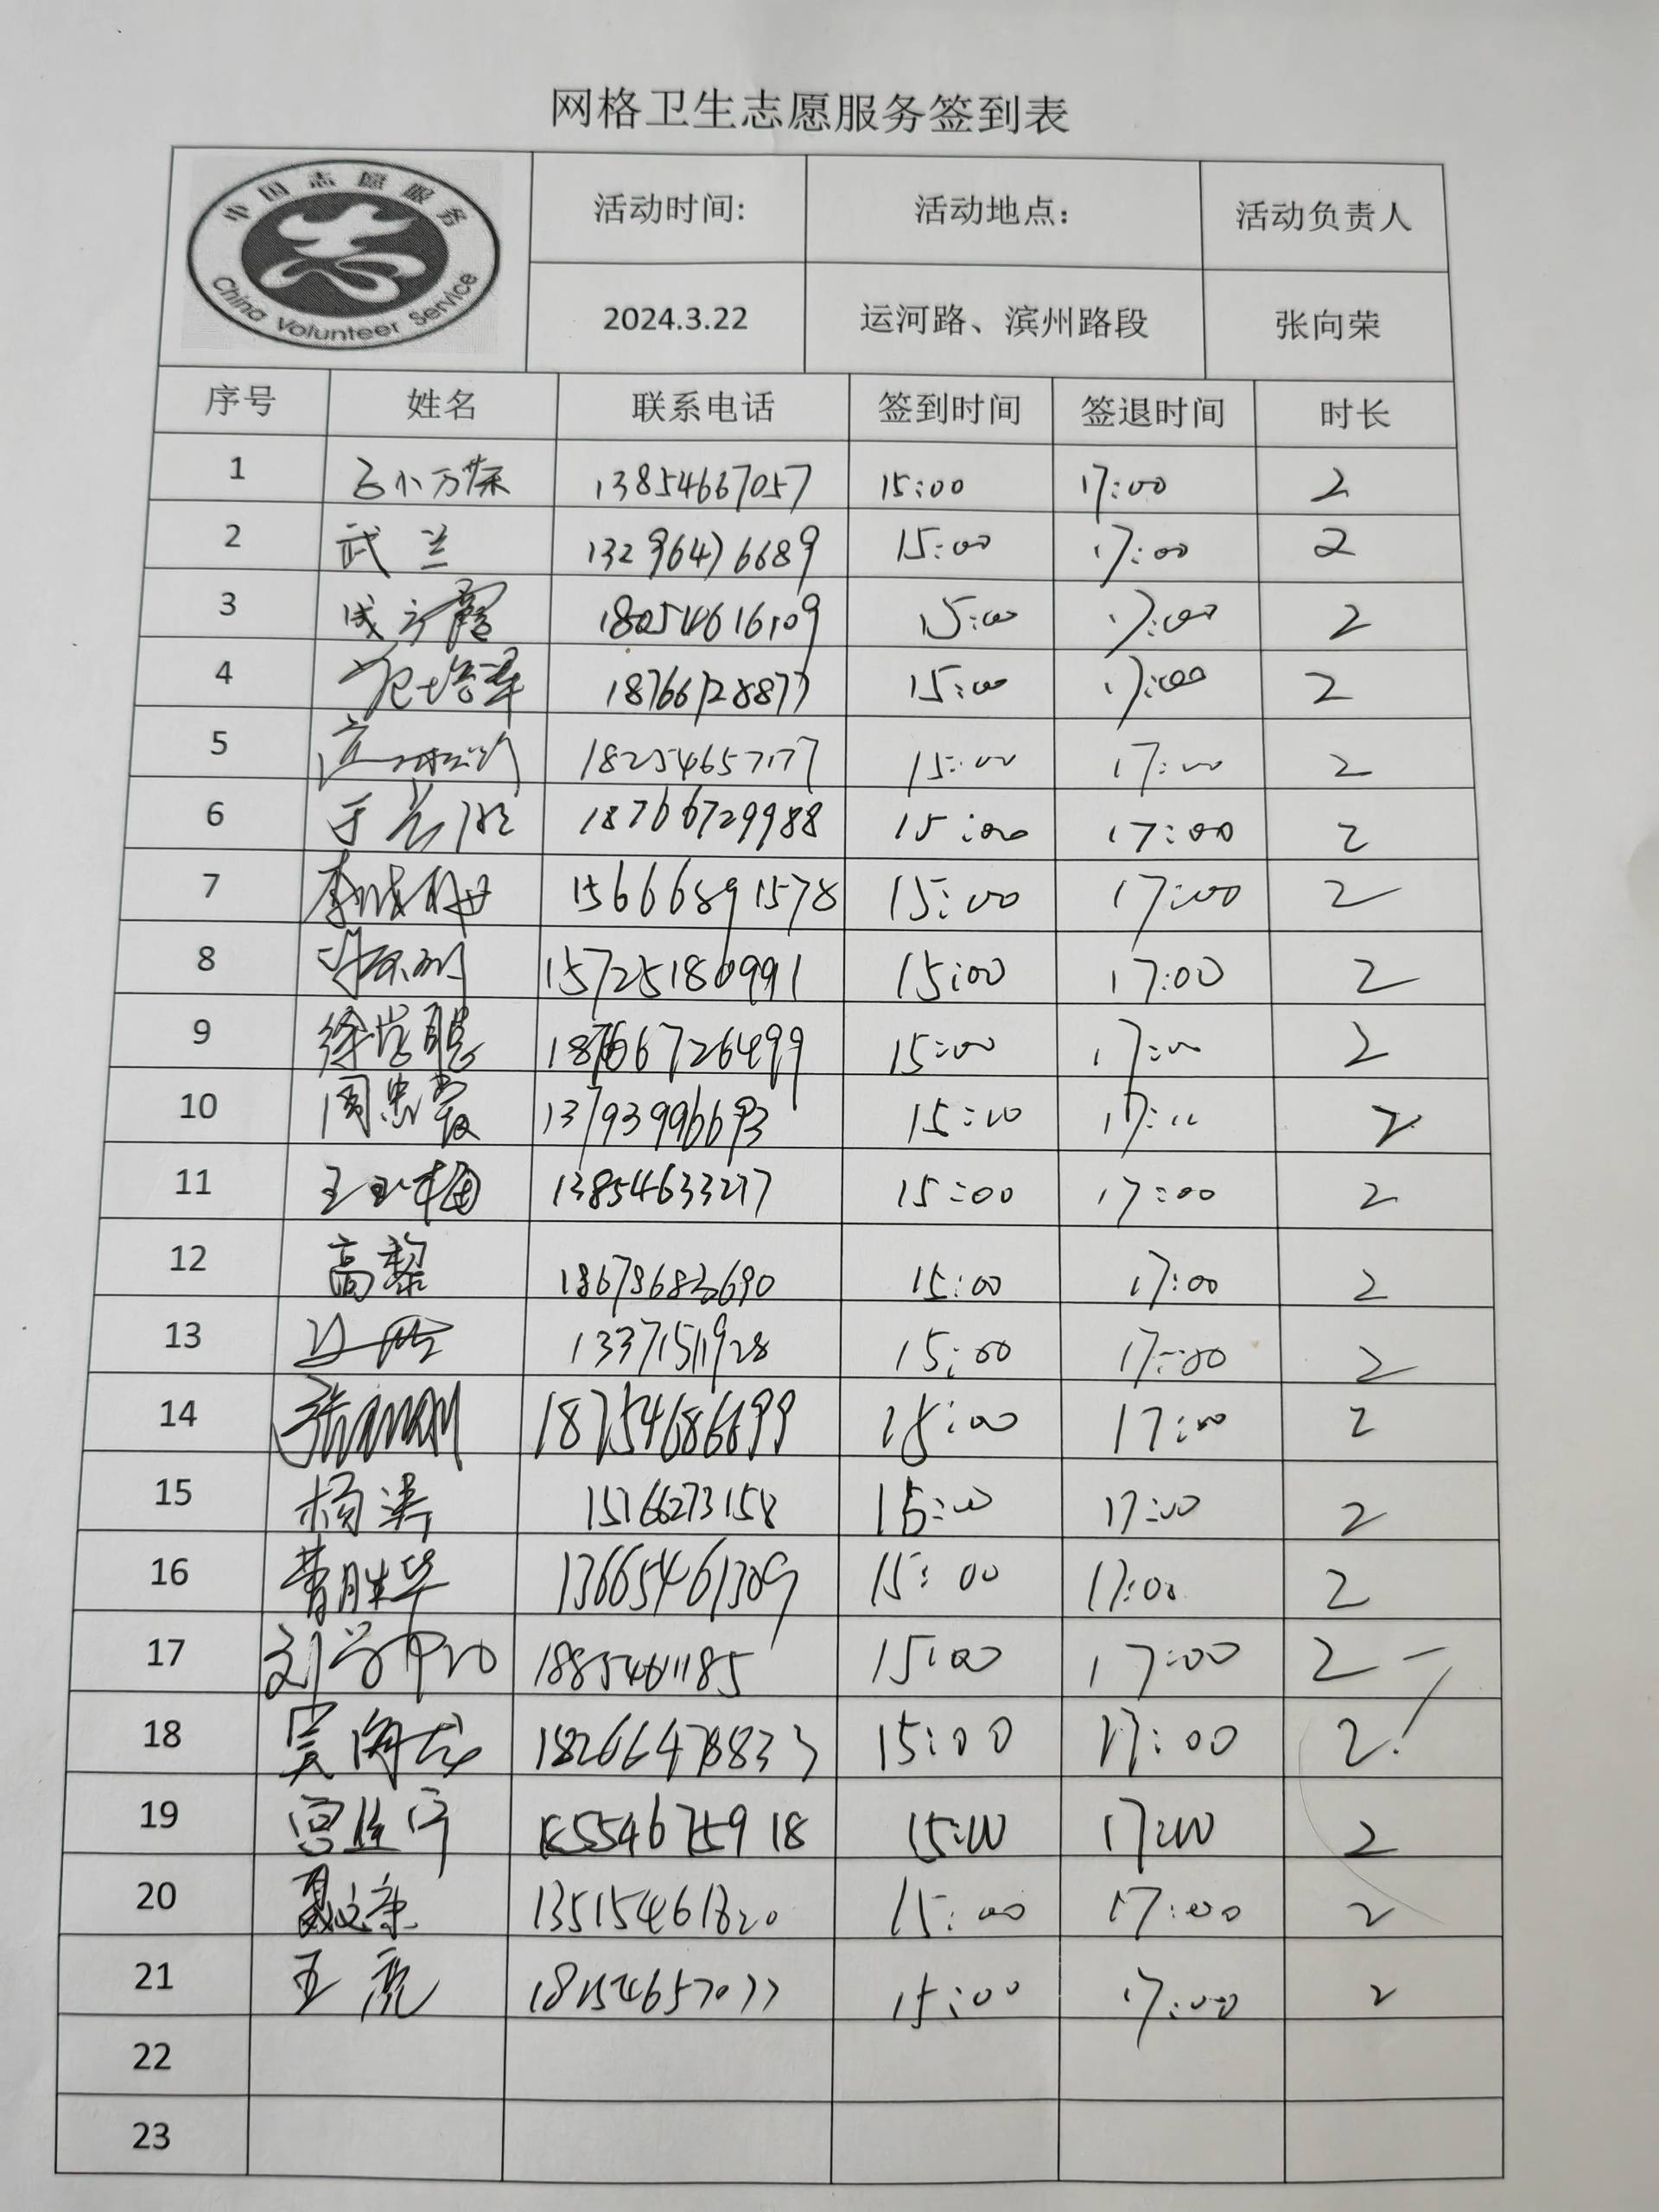 网格卫生志愿服务签到表
中国志愿服务
China Volunteer Service
活动时间: 活动地点: 活动负责人
2024.3.22 运河路、滨州路段 张向荣
序号 姓名 联系电话 签到时间 签退时间 时长
1 13854667057 15:00 17:00 2
2 武兰 13296476689 15:00 17:00 2
3 18054616109 15:00 17:00 2
4 范培军 18766728877 15:00 17:00 2
5 15:00 17:00 2
6 18766729988 15:00 17:00 2
7 15666891578 15:00 17:00 2
8 15725180991 15:00 17:00 2
9 15:00 17:00 2
10 周忠霞 15:00 17:00 2
11 王玉梅 13854633277 15:00 17:00 2
12 高黎 15:00 17:00 2
13 13371511928 15:00 17:00 2
14 18754686699 15:00 17:00 2
15 杨涛 15166273158 15:00 17:00 2
16 曹胜华 13665461309 15:00 17:00 2
17 18854611185 15:00 17:00 2
18 吴海龙 18266478833 15:00 17:00 2
19 15554675918 15:00 17:00 2
20 15:00 17:00 2
21 王亮 15:00 17:00 2
22
23